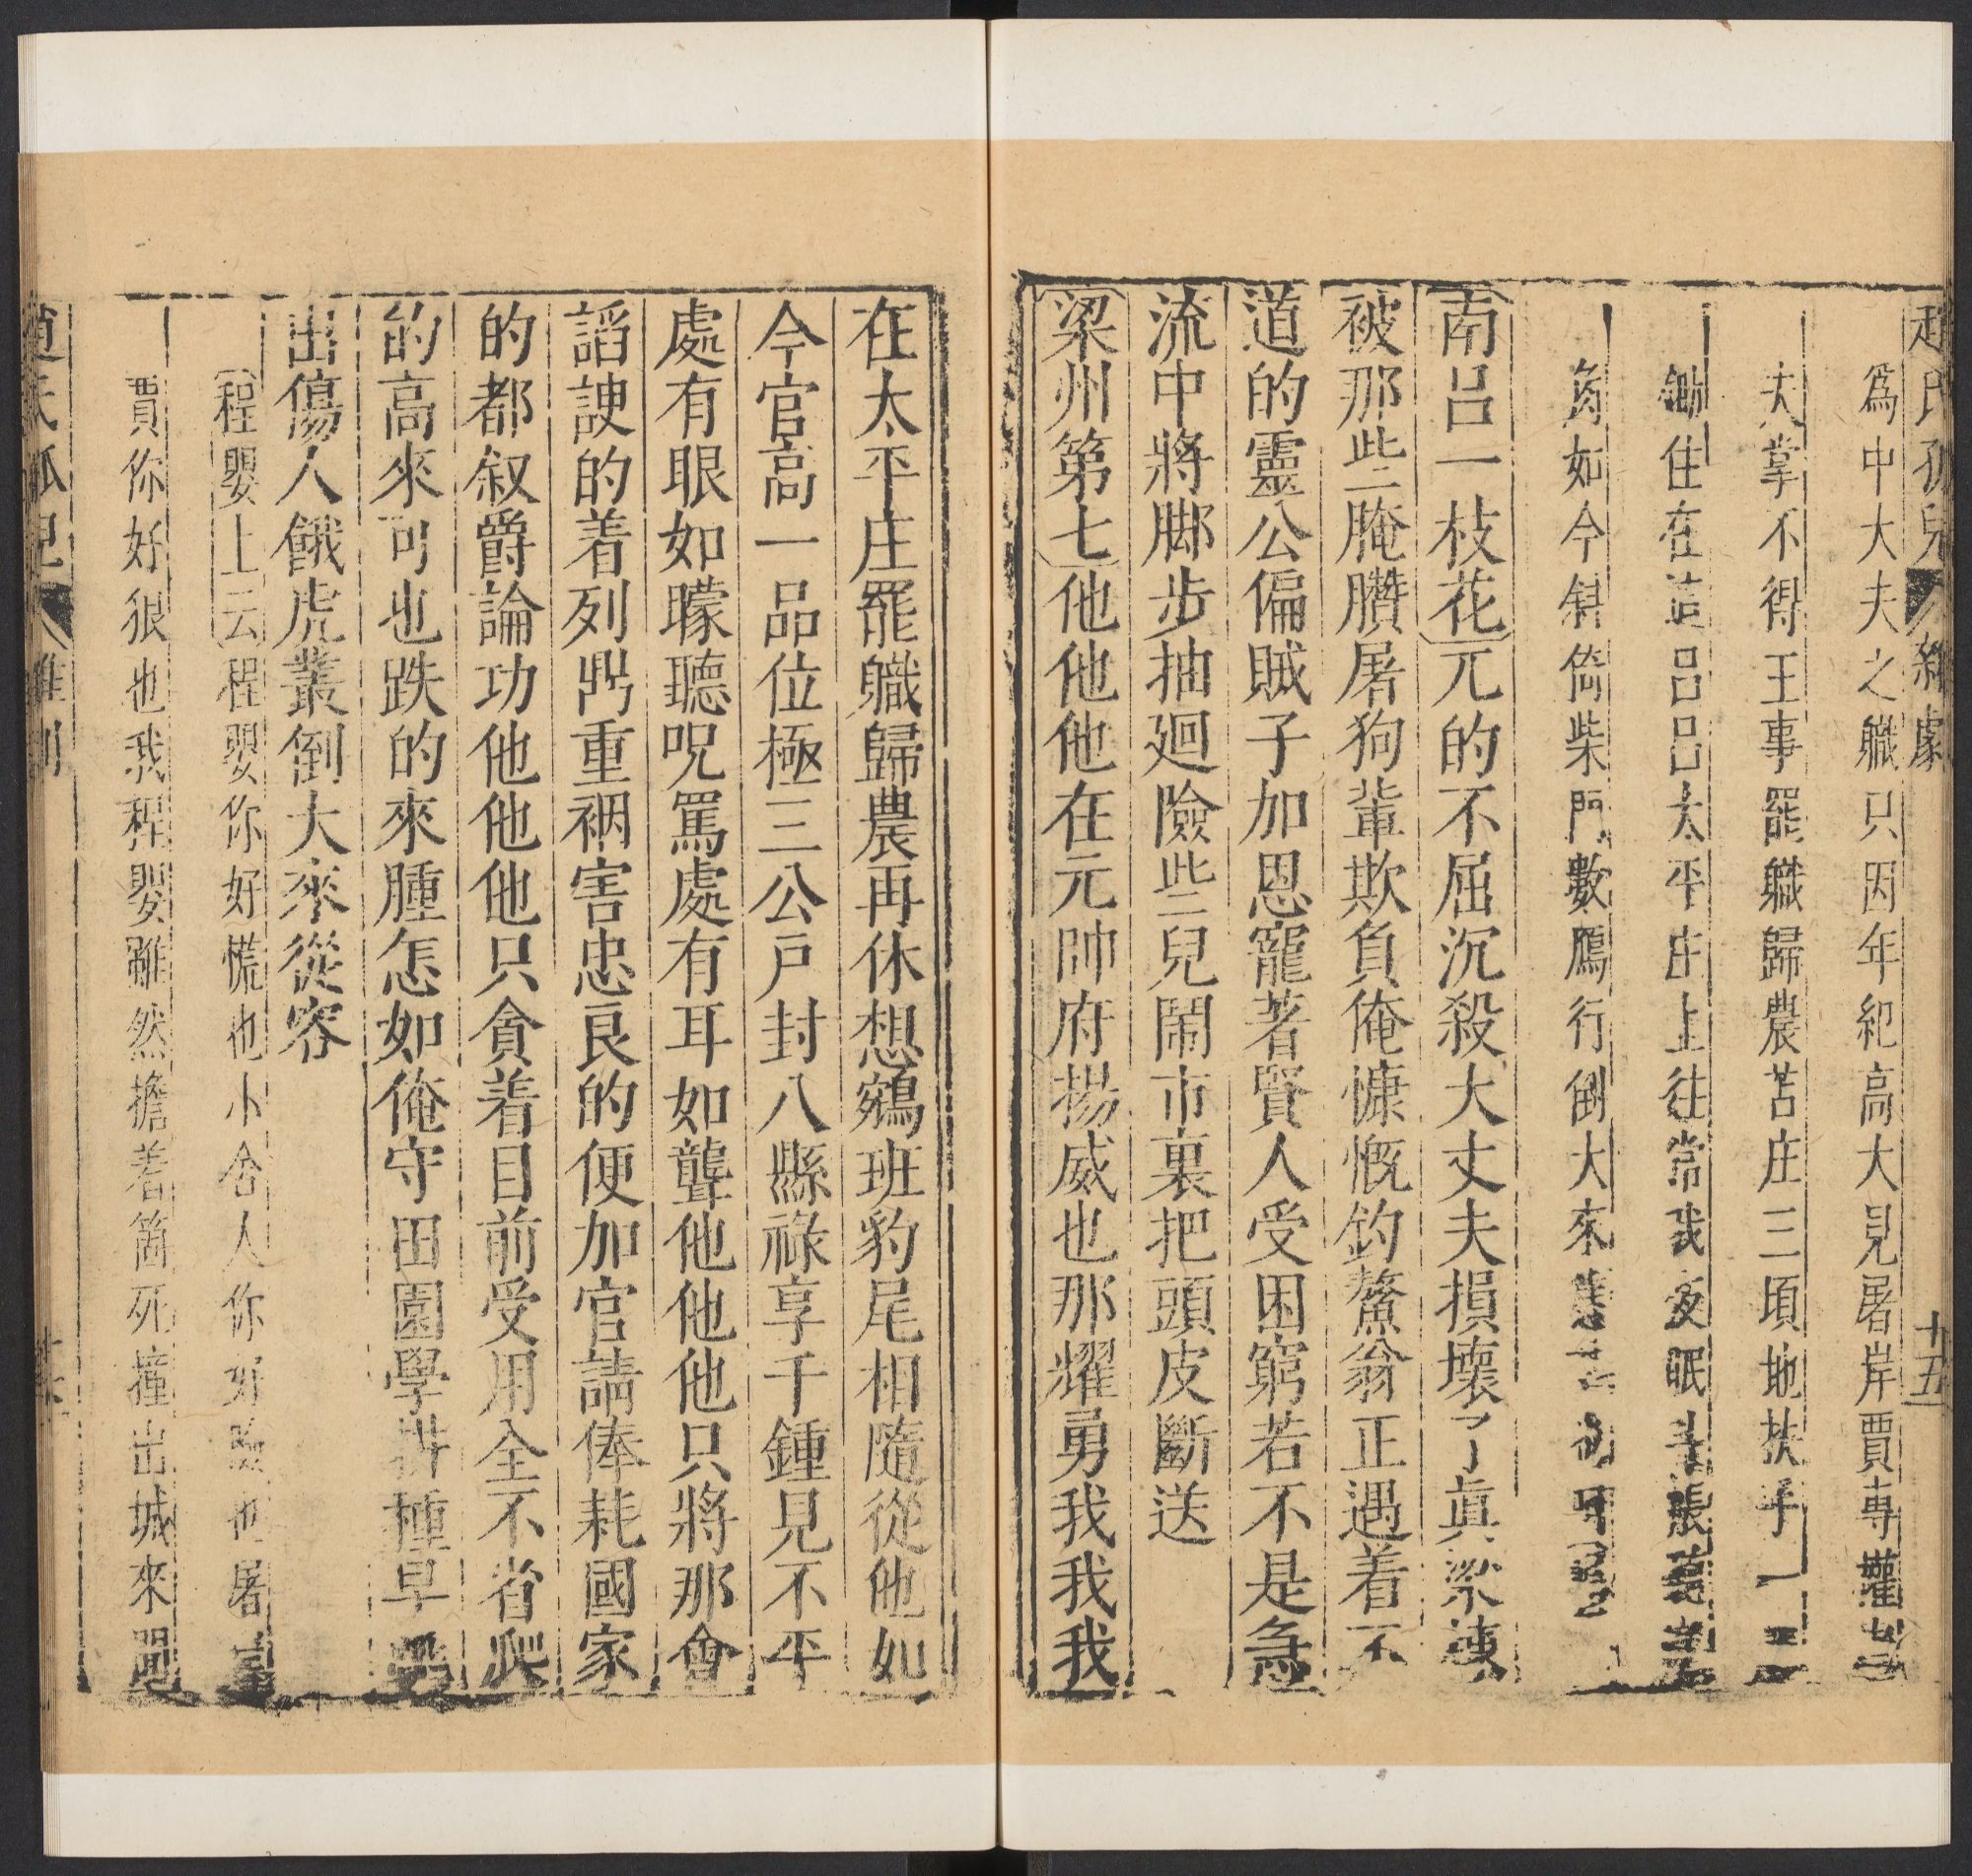 趙氏孤兒 雜劇 十五
爲中大夫之職只因年紀高大見屠岸賈專權
夫掌不得王事罷職歸農苫庄三頃地扶手一
鋤住在這呂呂太平庄上往常我夜眠斗帳
角如今斜倚柴門數鴈行倒大來
南呂一枝花兀的不屈沉殺大丈夫損壞了眞梁棟
被那些腌臢屠狗輩欺負俺慷慨釣鰲翁正遇着不
道的靈公偏賊子加恩寵著賢人受困窮若不是急
流中將脚步抽廻險些兒鬧市裏把頭皮斷送
梁州第七他他他在元帥府揚威也那耀勇我我我
在太平庄罷職歸農再休想鵷班豹尾相隨從他如
今官高一品位極三公戶封八縣祿享千鍾見不平
處有眼如矇聽呪罵處有耳如聾他他他只將那會
諂諛的着列鼎重裀害忠良的便加官請俸耗國家
的都叙爵論功他他他只貪着目前受用全不省爬
的高來可也跌的來腫怎如俺守田園學耕種早
出傷人餓虎叢倒大來從容
程嬰上云程嬰你好慌也小舍人你好也屠
賈你好狠也我程嬰雖然擔着箇死撞出城來聞
趙氏孤兒 雜劇